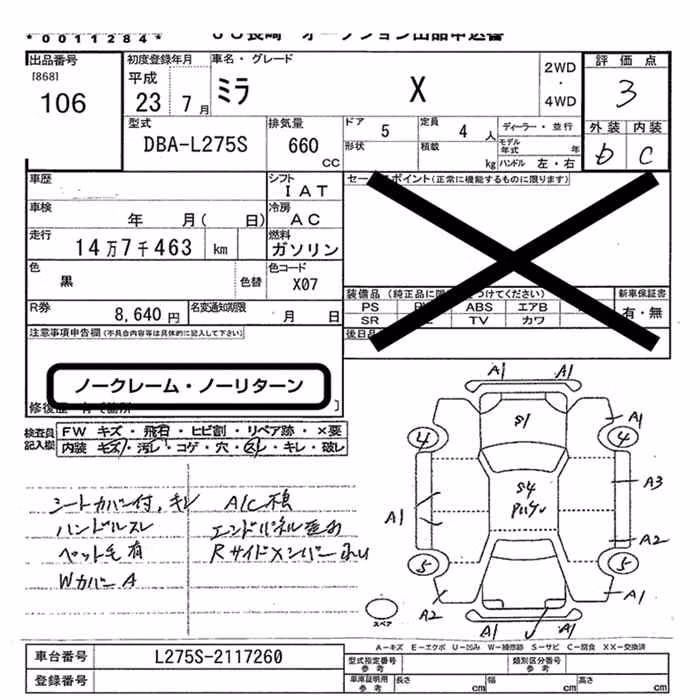 *0011284*　ＪＵ長崎　オークション出品申込書
出品番号
[868]
106
初度登録年月
平成
23 7月
車名・グレード
ミラ X
2WD
・
4WD
評価点
3
外装 内装
b C
型式
DBA-L275S
排気量
660
CC
ドア 5
定員 4 人
ディーラー・並行
形状
積載 kg
モデル年式 年
ハンドル 左・右
車歴
シフト
IAT
セールスポイント(正常に機能するものに限ります)
車検
年 月( 日)
冷房
AC
走行
14万7千463 km
燃料
ガソリン
色
黒
色替
色コード
X07
R券
8,640円
名変通知期限
月 日
装備品
PS ABS エアB
SR TV カワ
新車保証書
有・無
後日品
注意事項申告欄(不具合内容等は具体的に記入して下さい)
ノークレーム・ノーリターン
修復歴
検査員記入欄
FW キズ・飛石・ヒビ割・リペア跡・×要
内装 キズ・汚レ・コゲ・穴・スレ・キレ・破レ
シートカバー付,キレ A/C不良
ハンドルスレ
ペット毛有
Wカバー A
A1 A1
S1
A1
4 4
S4
A3
A1
A2
5 5
A2 A1
A1 A1
スペア
A－キズ E－エクボ U－凹み W－補修跡 S－サビ C－腐食 XX－交換済
車台番号 L275S-2117260
登録番号
型式指定番号
参考
類別区分番号
参考
車庫証明用
参考
長さ cm 幅 cm 高さ cm